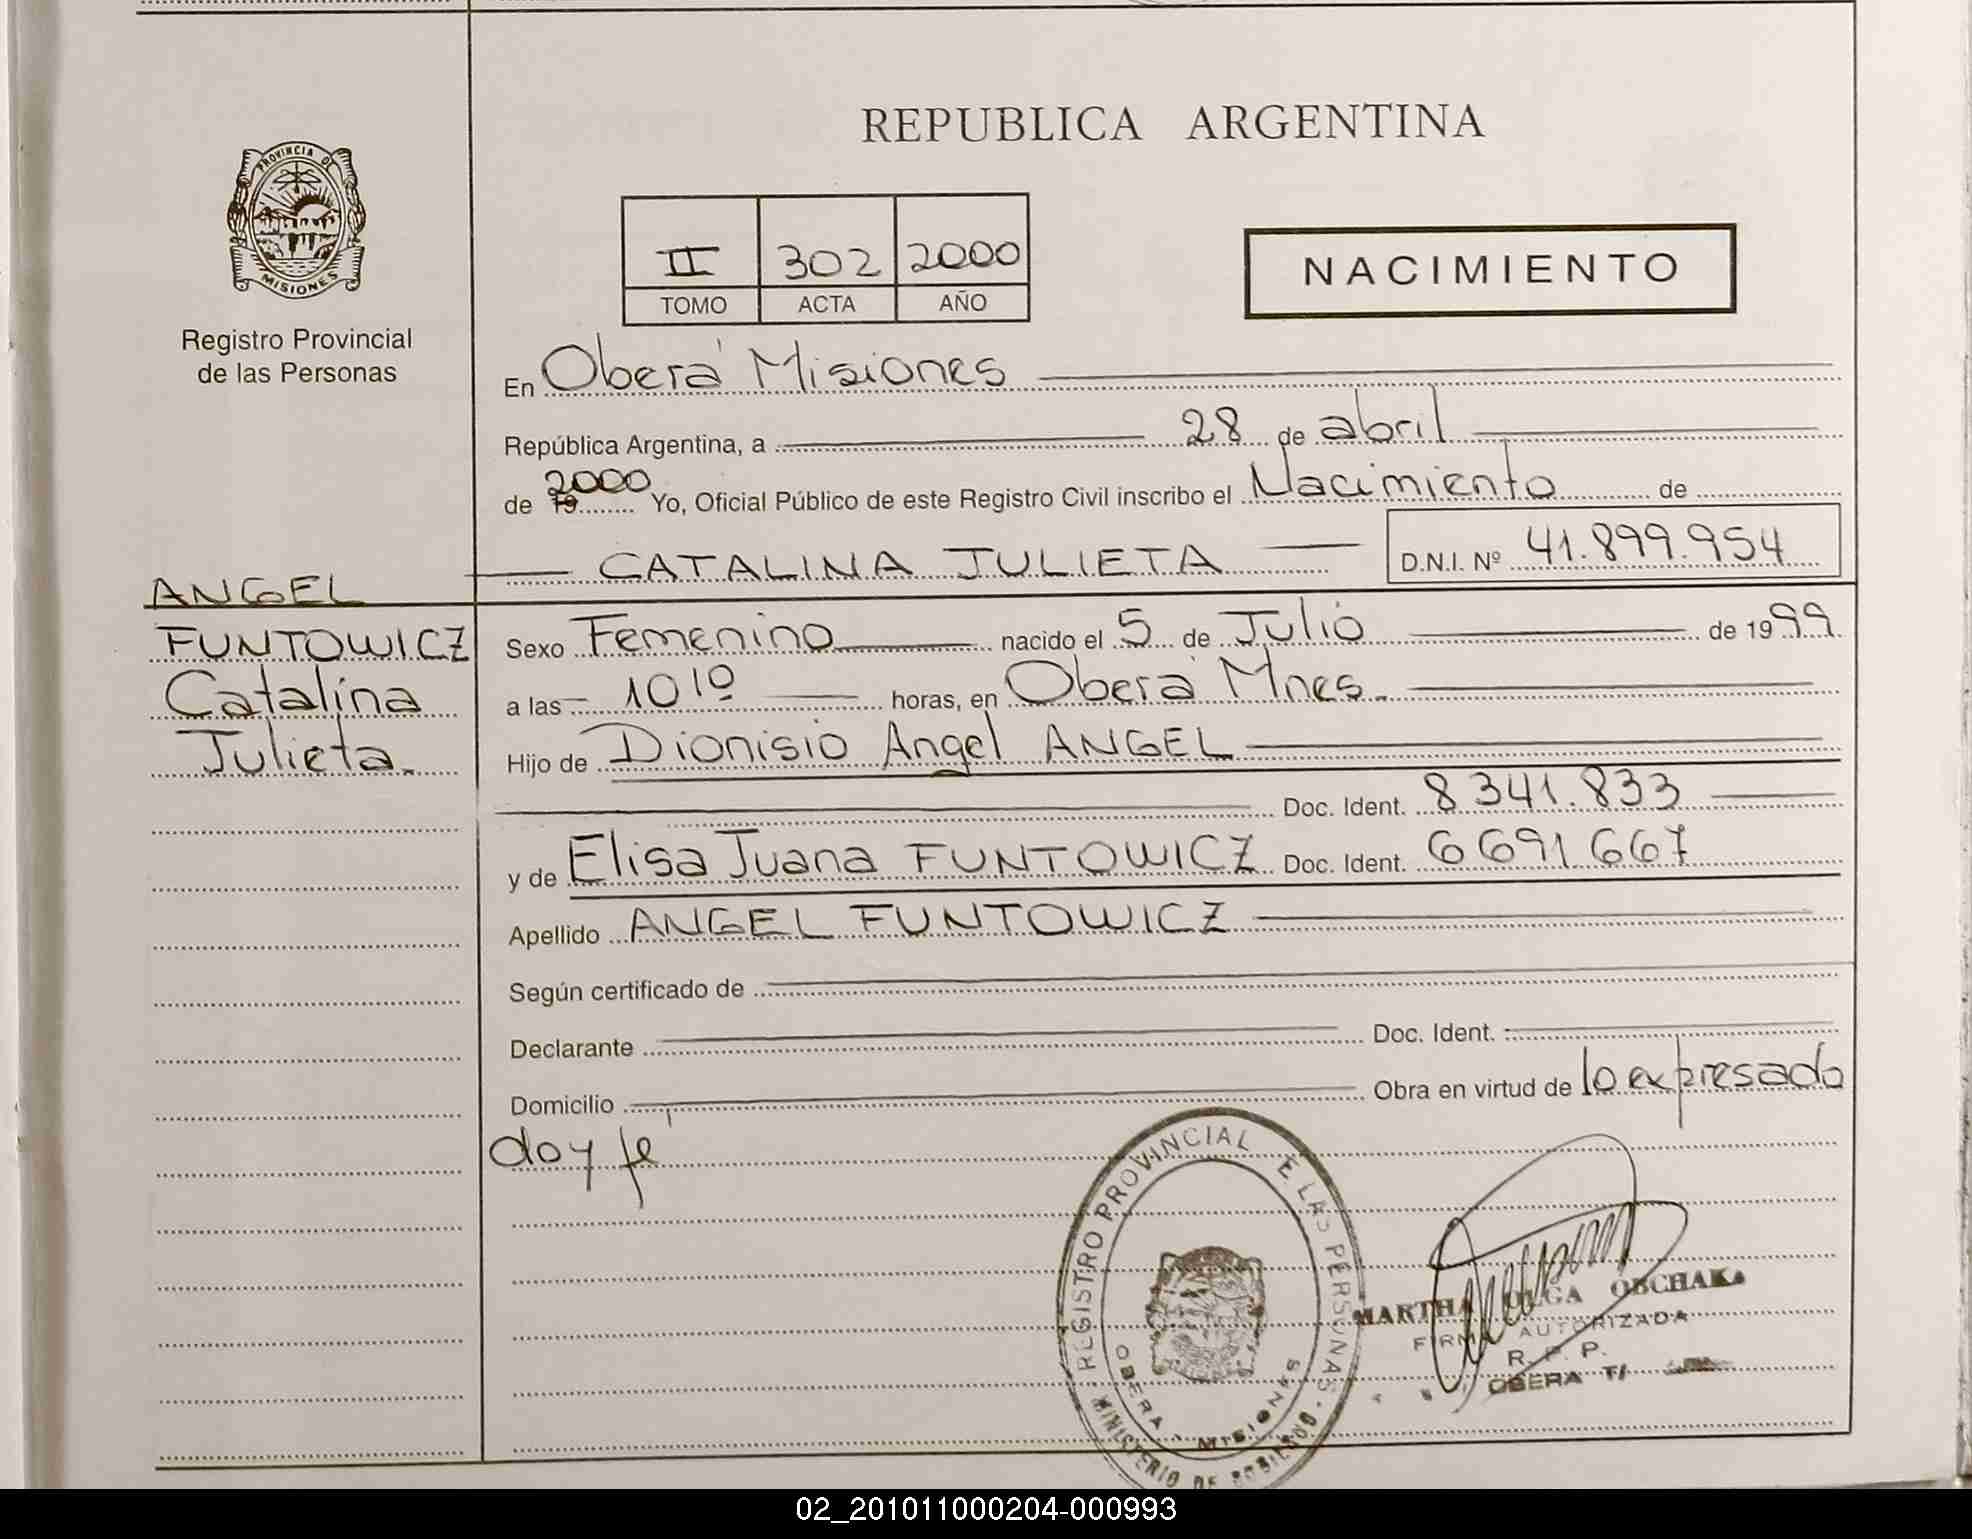 REPUBLICA ARGENTINA
PROVINCIA DE
MISIONES
Registro Provincial
de las Personas
II 302 2000
TOMO ACTA AÑO
NACIMIENTO
En Oberá Misiones
República Argentina, a 28 de abril
de 19 2000 Yo, Oficial Público de este Registro Civil inscribo el Nacimiento de
CATALINA JULIETA D.N.I. Nº 41.899.954
ANGEL
FUNTOWICZ
Catalina
Julieta
Sexo Femenino nacido el 5 de Julio de 1999
a las 10 10 horas, en Oberá Mnes.
Hijo de Dionisio Angel ANGEL
Doc. Ident. 8341.833
y de Elisa Juana FUNTOWICZ Doc. Ident. 6691667
Apellido ANGEL FUNTOWICZ
Según certificado de
Declarante Doc. Ident.
Domicilio Obra en virtud de lo expresado
doy fé
REGISTRO PROVINCIAL E LAS PERSONAS
OBERA MISIONES
MINISTERIO DE GOBIERNO
MARTHA OLGA OBCHAK
FIRMA AUTORIZADA
R. P. P.
OBERA
02_201011000204-000993